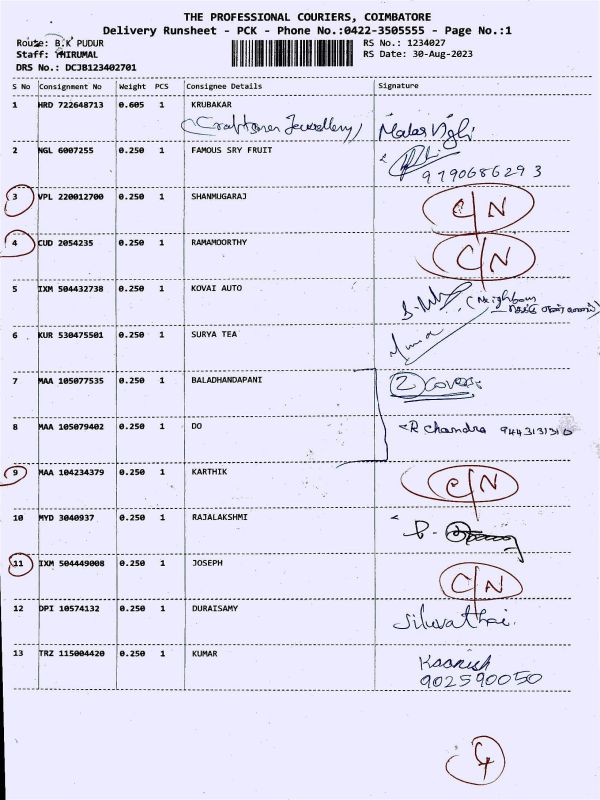 THE PROFESSIONAL COURIERS, COIMBATORE
Delivery Runsheet - PCK - Phone No.:0422-3505555 - Page No.:1
Route: B.K PUDUR
RS No.: 1234027
Staff: THIRUMAL
RS Date: 30-Aug-2023
DRS No.: DCJB123402701
S No Consignment No Weight PCS Consignee Details Signature
1 HRD 722648713 0.605 1 KRUBAKAR
(Craftsmen Jewellery)
2 NGL 6007255 0.250 1 FAMOUS SRY FRUIT
9790686293
3 VPL 220012700 0.250 1 SHANMUGARAJ C/N
4 CUD 2054235 0.250 1 RAMAMOORTHY C/N
5 IXM 504432738 0.250 1 KOVAI AUTO
(Neighbour
6 KUR 530475501 0.250 1 SURYA TEA
7 MAA 105077535 0.250 1 BALADHANDAPANI 2 Covers
8 MAA 105079402 0.250 1 DO R Chandra 9443131310
9 MAA 104234379 0.250 1 KARTHIK C/N
10 MYD 3040937 0.250 1 RAJALAKSHMI
11 IXM 504449008 0.250 1 JOSEPH C/N
12 DPI 10574132 0.250 1 DURAISAMY Siluvathai.
13 TRZ 115004420 0.250 1 KUMAR
902590050